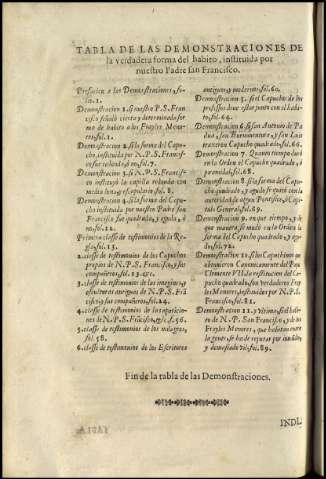 TABLA DE LAS DEMONSTRACIONES DE
la verdadera forma del habito, instituida por
nuestro Padre san Francisco.
Prefacion a las Demonstraciones, fo-
lio. 1.
Demonstracion 1. si nuestro P. S. Fran-
cisco señaló cierta y determinada for
ma de habito a los Frayles Meno-
res, fol. 1.
Demonstracion 2. si la forma del Capu-
cho instituida por N. P. S. Francis-
co fue redonda, fol. 7.
Demonstracion 3. si N. P. S. Francis-
co instituyó la capilla redonda con
media luna, y sepulcro, fol. 8.
Demonstracion 4. si la forma del Capu-
cho instituida por nuestro Padre san
Francisco fue quadrada, y aguda,
fol. 12.
Primera classe de testimonios de la Re-
gla, fol. 13.
2. classe de testimonios de los Capuchos
propios de N. P. S. Francisco, y sus
compañeros, fol. 13. &c.
3. classe de testimonios de las imagines, y
esculturas antiguas de N. P. S. Frã
cisco, y sus compañeros, fol. 24.
4. classe de testimonios de las aparicio-
nes de N. P. S. Francisco, &c. f. 56.
5. classe de testimonios de los milagros,
fol. 58.
6. classe de testimonios de los Escritores
antiguos, y modernos, fol. 60.
Demonstracion 5. si el Capucho de los
professos deve estar junto con el habi-
to, fol. 64.
Demonstracion 6. si san Antonio de Pa
dua, san Buenaventura, y san Luis
traxeron Capucho quadrado, fol. 66.
Demonstracion 7. Quanto tiempo duró
en la Orden el Capucho quadrado, o
piramidal, fol. 68.
Demonstracion 8. si la forma del Capu-
cho quadrado, y agudo se quitó con la
autoridad de algun Pontifice, o Capi-
tulo General, fol. 69.
Demonstracion 9. en que tiempo, y de
que manera se mudó en la Orden la
forma del Capucho quadrado, y agu-
do, fol. 72.
Demonstracion 10. si los Capuchinos que
 Comencaron con autoridad del Papa
Clemente VII. la institucion del Ca-
pucho quadrado, son verdaderos Fray
les Menores, instituidos por N. P. S.
Francisco, fol. 81.
Demonstracion 11. y vltima, si el habi-
to de N. P. San Francisco, y de los
Frayles Menores, que habitan entre
la gente, se ha de reputar por cumbido,
y demasiado vil, fol. 89.
Fin de la tabla de las Demonstraciones.
INDI-